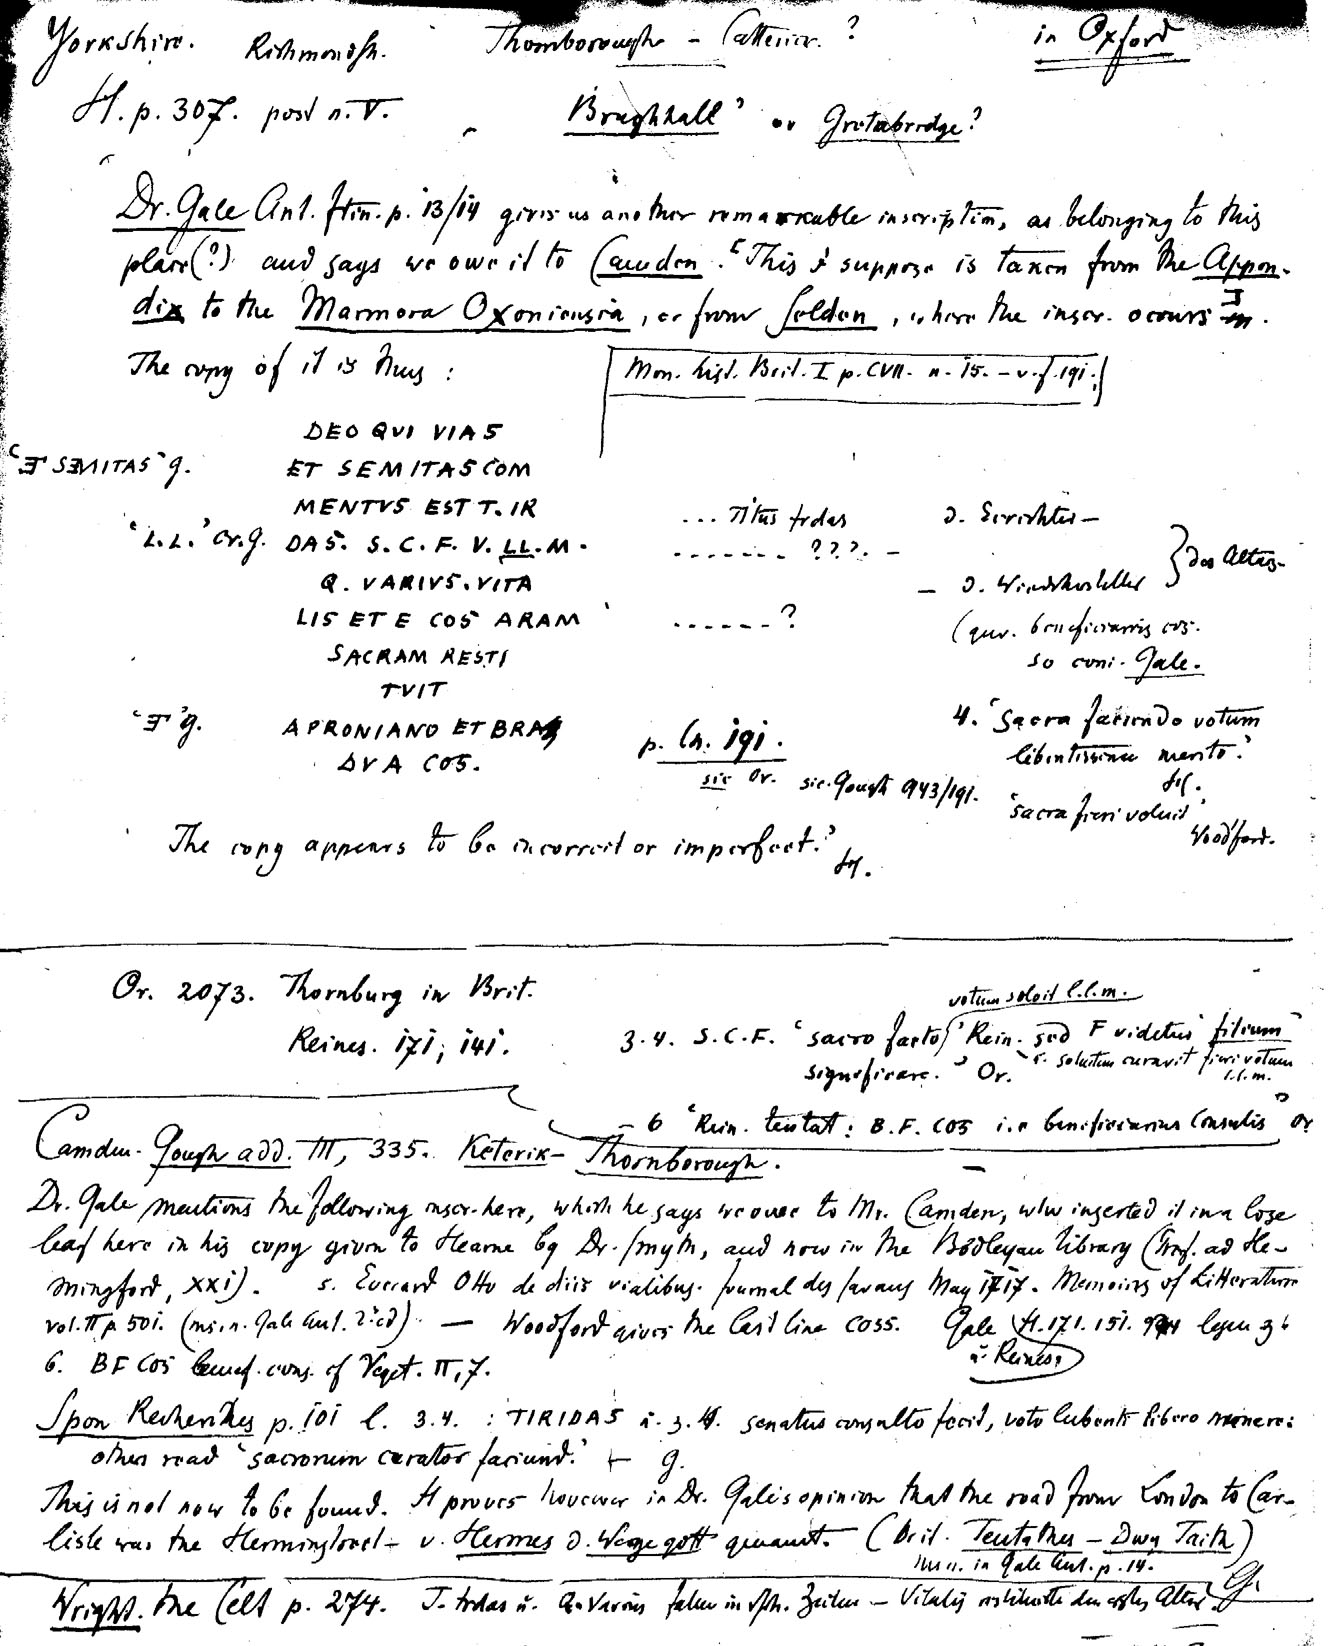 Yorkshire. Richmondsh. Thornborough – Catteric. ? in Oxford
H. p. 307. post n. V. Brughhall' or Gretabridge?
Dr. Gale Ant. Itin. p. 13/14 gives us another remarkable inscription, as belonging to this
place(?) and says we owe it to Camden. This I suppose is taken from the Appen-
dix to the Marmora Oxoniensia, or from Selden, where the inscr. occurs
The copy of it is thus :
Mon. hist. Brit. I p. CVII. n. 15. – v. f. 191.
DEO QUI VIAS
'ET SEMITAS' g. ET SEMITAS COM
MENTVS EST T. IR ... Titus Irdas
'L.L.' Or. g. DAS. S. C. F. V. LL. M. ....... ???. –
Q. VARIVS. VITA
LIS ET E COS ARAM ......? (qu. beneficiarius cos.
SACRAM RESTI so coni. Gale.
TVIT
'ET' g. APRONIANO ET BRA
DVA COS.
p. Ch. 191.
sic Or. sic. Gough 943/191.
4. 'Sacra faciundo votum
libentissime merito.'
H.
'sacra fieri voluit'
Woodford.
The copy appears to be incorrect or imperfect.'
H.
Or. 2073. Thornburg in Brit.
Reines. 171, 141.
votum solvit l.l.m.
3.4. S.C.F. 'sacro facto' Rein. sed F videtur filium
significare.' Or. solutum curavit fieri votum
l.l.m.
– 6 'Rein. tentat: B.F. COS i.e beneficiarius Consulis' Or
Camden. Gough add. III, 335. Keterik– Thornborough.
Dr. Gale mentions the following inscr. here, which he says we owe to Mr. Camden, who inserted it in a lose
leaf here in his copy given to Hearne by Dr. Smyth, and now in the Bodleyan library (Praf. ad He-
mingford, XXI). s. Everard Otto de diis vialibus. Journal des Savans May 1717. Memoirs of Litterature
vol. II p 501. (ms. n. Gale Ant. 2d ed) — Woodford gives the last line COSS. Gale H. 171. 151.
Reines.
6. BF COS benef. cons. of Veget. II, 7.
Spon Recherches p. 101 l. 3.4. : TIRIDAS 3. 4. senatus consulto fecit, voto lubenti libero munere:
others read 'sacrorum curator faciund.' g.
This is not now to be found. It proves however in Dr. Gale's opinion that the road from London to Car-
lisle was the Herminstreet – v. Hermes d. Wege gott genannt. (Brit. Teutathes – Dwy Taith)
in Gale Ant. p. 14. G.
Wright. the Celt p. 274. T. Irdas u. Q. Varius Zeilen – Vitalis